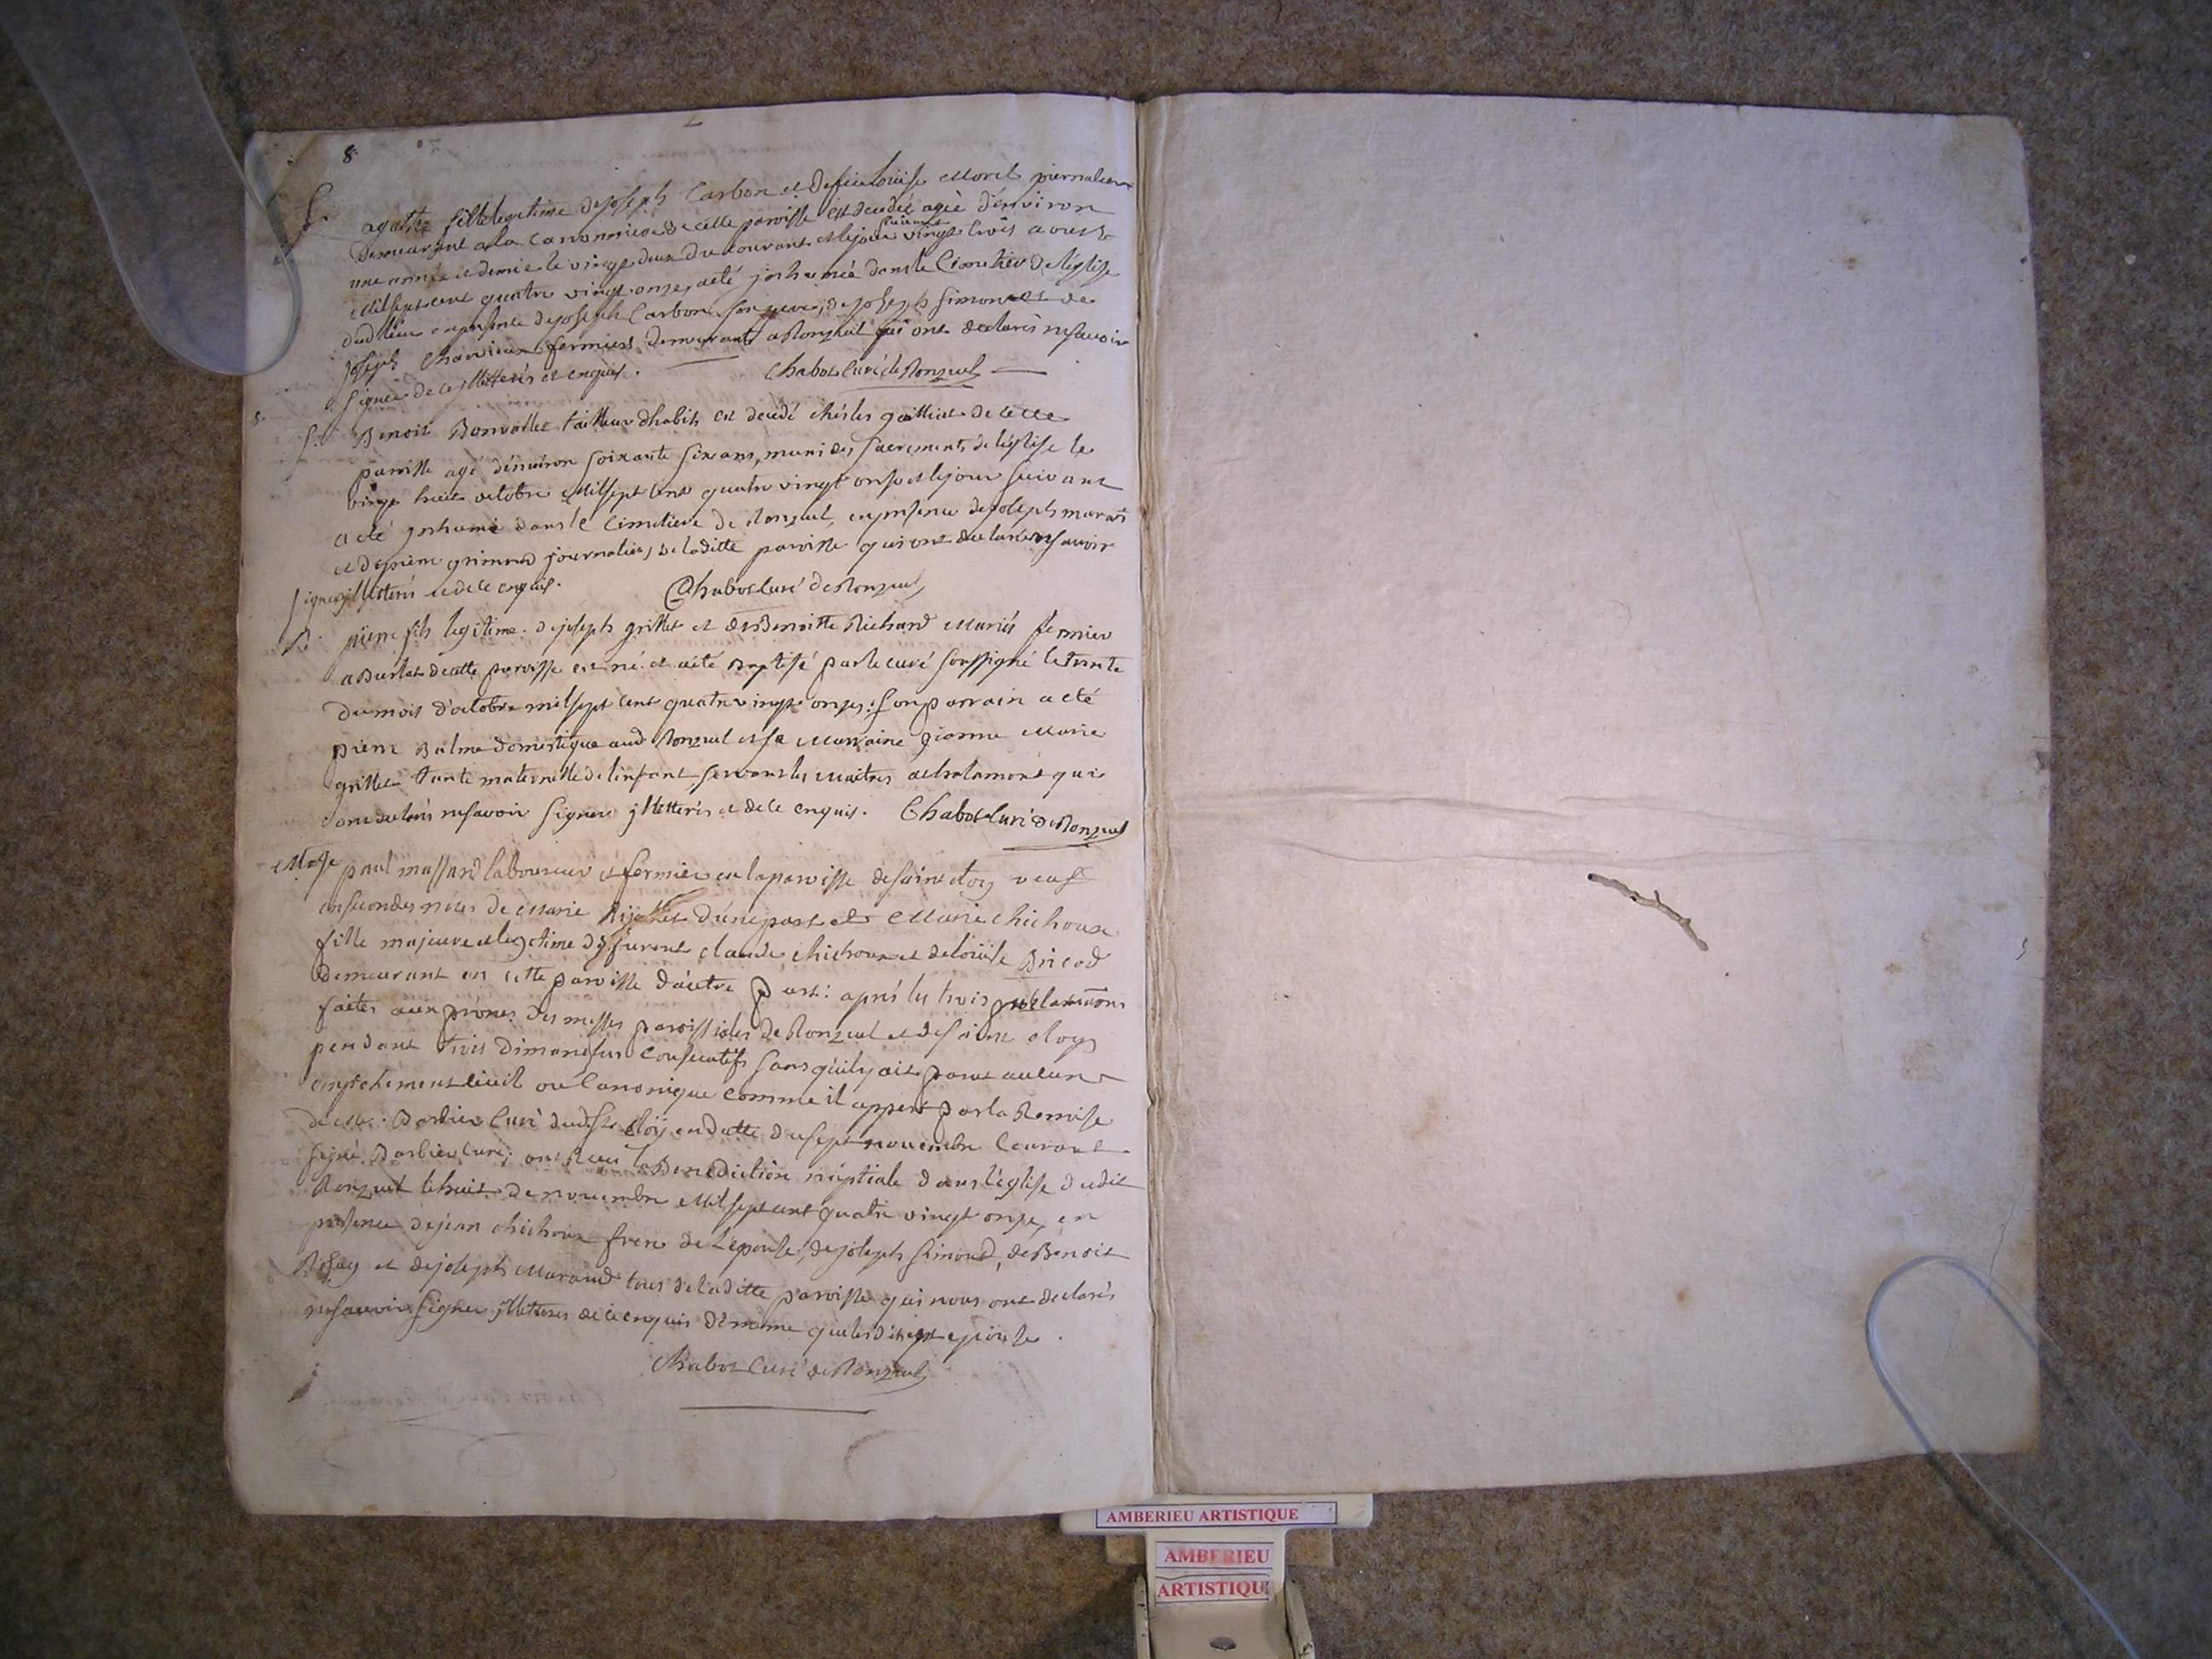 8
S. agathe fille legitime de joseph Carbon et de feu louise Morel journaliers
demeurant a la Canonniere de cette paroisse est decedée agée d'environ
une année et demie le vingt deux du courant et le jour suivant vingt trois aoust
Mil sept cent quatre vingt onze, a été jnhumée dans le Cimetiere de l'église
dud lieu en presence de joseph Carbon son pere, de joseph Simond et de
joseph Charvieux fermiers demeurants a Ronzuel qui ont declarés ne savoir
signer de ce jlletterés et enquis. Chabot Curé de Ronzuel
S. Benoit Bonvallet tailleur dhabits est decedé chés les guilliat de cette
paroisse agé d'environ soixante six ans, muni des sacrements de l'église le
vingt huit octobre Mil sept cent quatre vingt onze et le jour suivant
a été jnhumé dans le Cimetiere de Ronzuel, en presence de joseph maran
et de pierre grimand journaliers de laditte paroisse qui ont declarés ne savoir
signer jlletterés et de ce enquis. Chabot Curé de Ronzuel
B. pierre fils legitime de joseph grillet et de Benoitte Richard Mariés fermier
a Burlet de cette paroisse est né et a été Baptisé par le curé soussigné le trente
du mois d'octobre mil sept cent quatre vingt onze; son parrain a été
pierre Balme domestique aud Ronzuel et sa Marraine pierrne Marie
grillet tante maternelle de l'enfant servant les Maitres de chalamont qui
ont declarés ne savoir signer jlletterés et de ce enquis. Chabot Curé de Ronzuel
Mage paul massard laboureur et fermier en la paroisse de saint eloy veuf
en secondes nôces de Marie d'une part et Marie chichoux
fille majeure et legitime de furent claude chichoux et de loüise Bricod
demeurant en cette paroisse d'autre part: aprés les trois proclamations
faites aux prônes des messes paroissiales de Ronzuel et de saint eloy
pendant trois dimanches consecutifs sans qu'il y ait parut aucun
empechement civil ou Canonique comme il appert par la Remise
de Mr. Barbier Curé dud St eloy en datte du sept novembre Courant
signé Barbier curé; ont Reçu la Benediction nuptiale dans l'église dudit
Ronzuel le huit de novembre Mil sept cent quatre vingt onze, en
presence de jean chichoux frere de l'epouse, de joseph simond, de Benoit
et de joseph Marand tous de laditte paroisse qui nous ont declarés
ne savoir signer jlletterés de ce enquis de meme que lesdits et epouse.
Chabot Curé de Ronzuel
AMBERIEU ARTISTIQUE
AMBERIEU
ARTISTIQU